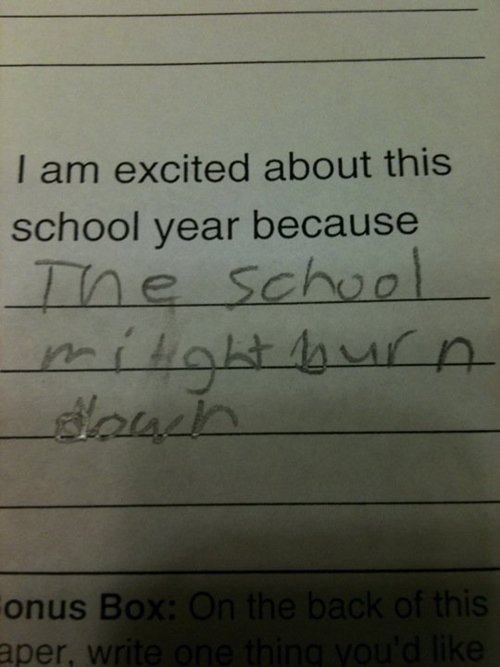 I am excited about this
school year because
The school
might burn
down
onus Box: On the back of this
aper, write one thing you'd like